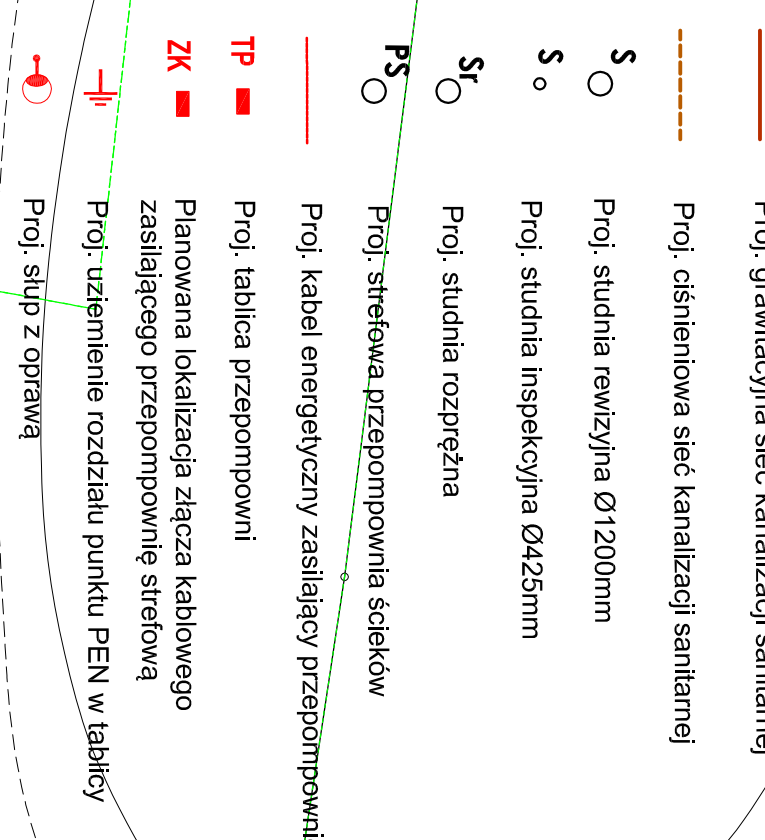 Proj. grawitacyjna sieć kanalizacji sanitarnej
Proj. ciśnieniowa sieć kanalizacji sanitarnej
S Proj. studnia rewizyjna Ø1200mm
S Proj. studnia inspekcyjna Ø425mm
Sr Proj. studnia rozprężna
PS Proj. strefowa przepompownia ścieków
Proj. kabel energetyczny zasilający przepompowni
TP Proj. tablica przepompowni
ZK Planowana lokalizacja złącza kablowego
zasilającego przepompownię strefową
Proj. uziemienie rozdziału punktu PEN w tablicy
Proj. słup z oprawą